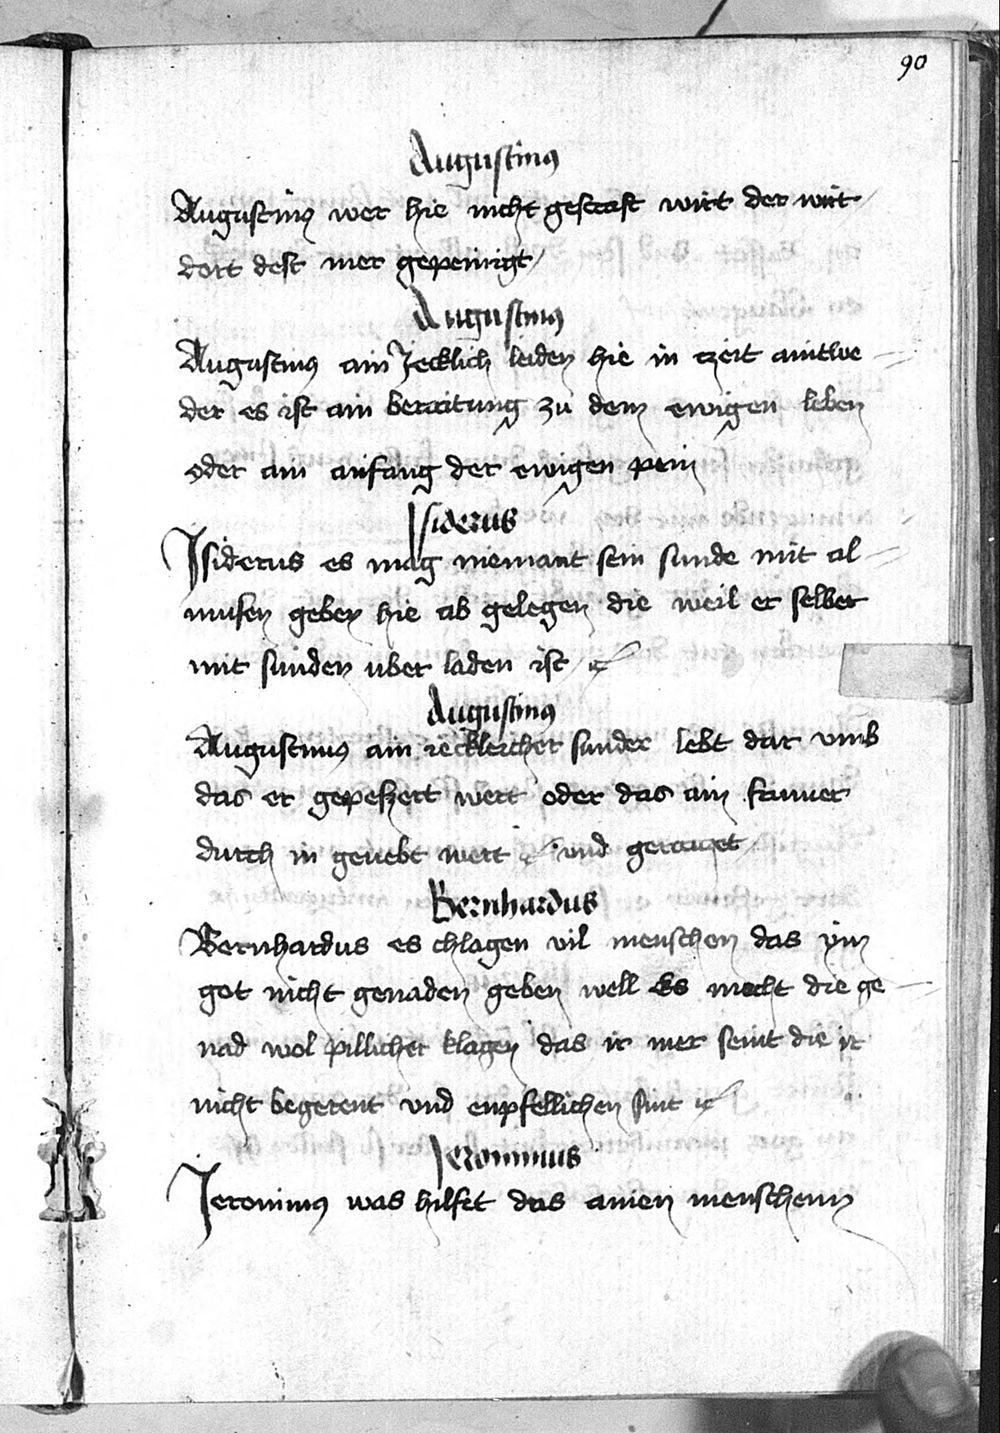 90
Augustinus
Augustinus wer hie nicht gestraft wirt der wirt
dort dest mer gepeinigt
Augustinus
Augustinus ain Jecklich leiden hie in czeit aintwe
der es ist ain beraitung zu dem ewigen leben
oder ain anfang der ewigen pein
Isiderus
Isiderus es mag niemant sein sunde mit al
musen geben hie ab gelegen die weil er selber
mit sunden uber laden ist
Augustinus
Augustinus ain iecklicher sunder lebt dar vmb
das er gepeszert wert oder das ain frumer
durch in geuebt wert und
Bernhardus
Bernhardus es chlagen vil menschen das yin
got nicht genaden geben well Es mecht die ge
nad wol pillicher klagen das ir mer seint die ir
nicht begerent vnd enpfellichen sint
Jeronimus
Jeronimus was hilfet das ainen menschenn